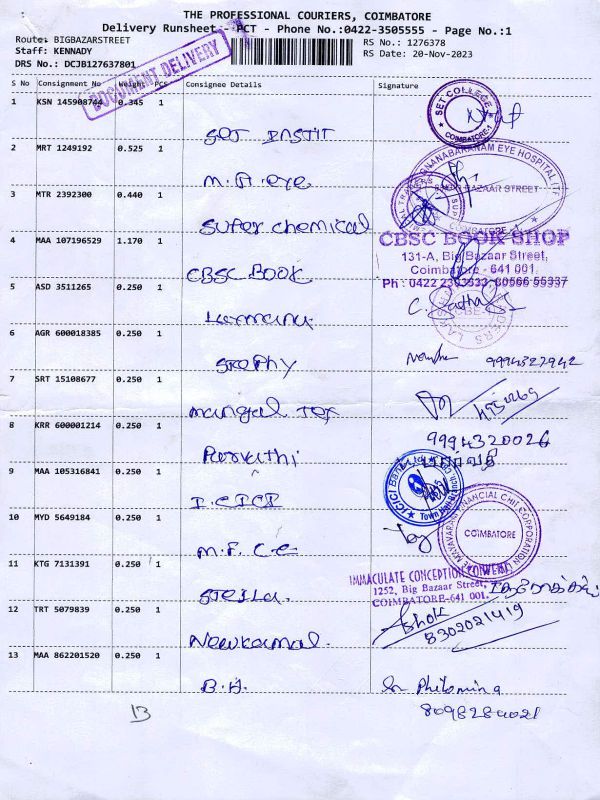 THE PROFESSIONAL COURIERS, COIMBATORE
Delivery Runsheet - PCT - Phone No.:0422-3505555 - Page No.:1
Route: BIGBAZARSTREET
RS No.: 1276378
Staff: KENNADY
RS Date: 20-Nov-2023
DRS No.: DCJB127637801
DOCUMENT DELIVERY
S No Consignment No Weight PCS Consignee Details Signature
1 KSN 145908744 0.345 1
SET COLLEGE
COIMBATORE-1
SET INSTIT
2 MRT 1249192 0.525 1
GNANABARANAM EYE HOSPITAL
BAZAAR STREET
M.A. eye
COIMBATORE
3 MTR 2392300 0.440 1
Super chemical
4 MAA 107196529 1.170 1
CBSC BOOK SHOP
131-A, Big Bazaar Street,
Coimbatore - 641 001.
CBSC BOOK
Ph : 0422 2393533, 80566 55337
5 ASD 3511265 0.250 1
6 AGR 600018385 0.250 1
9994327942
7 SRT 15108677 0.250 1
mangal Tex
8 KRR 600001214 0.250 1
9994320026
Parvathi
பார்வதி
9 MAA 105316841 0.250 1
ICICI Bank
Town Hall Branch
I.CICI
10 MYD 5649184 0.250 1
MAYAVARAM FINANCIAL CHIT CORPORATION
COIMBATORE
M.F.C.C
11 KTG 7131391 0.250 1
IMMACULATE CONCEPTION CONVENT
1252, Big Bazaar Street,
COIMBATORE-641 001.
Stella.
12 TRT 5079839 0.250 1
Ashok
8302021419
Newkamal.
13 MAA 862201520 0.250 1
B.H.
Sr Philomina
13